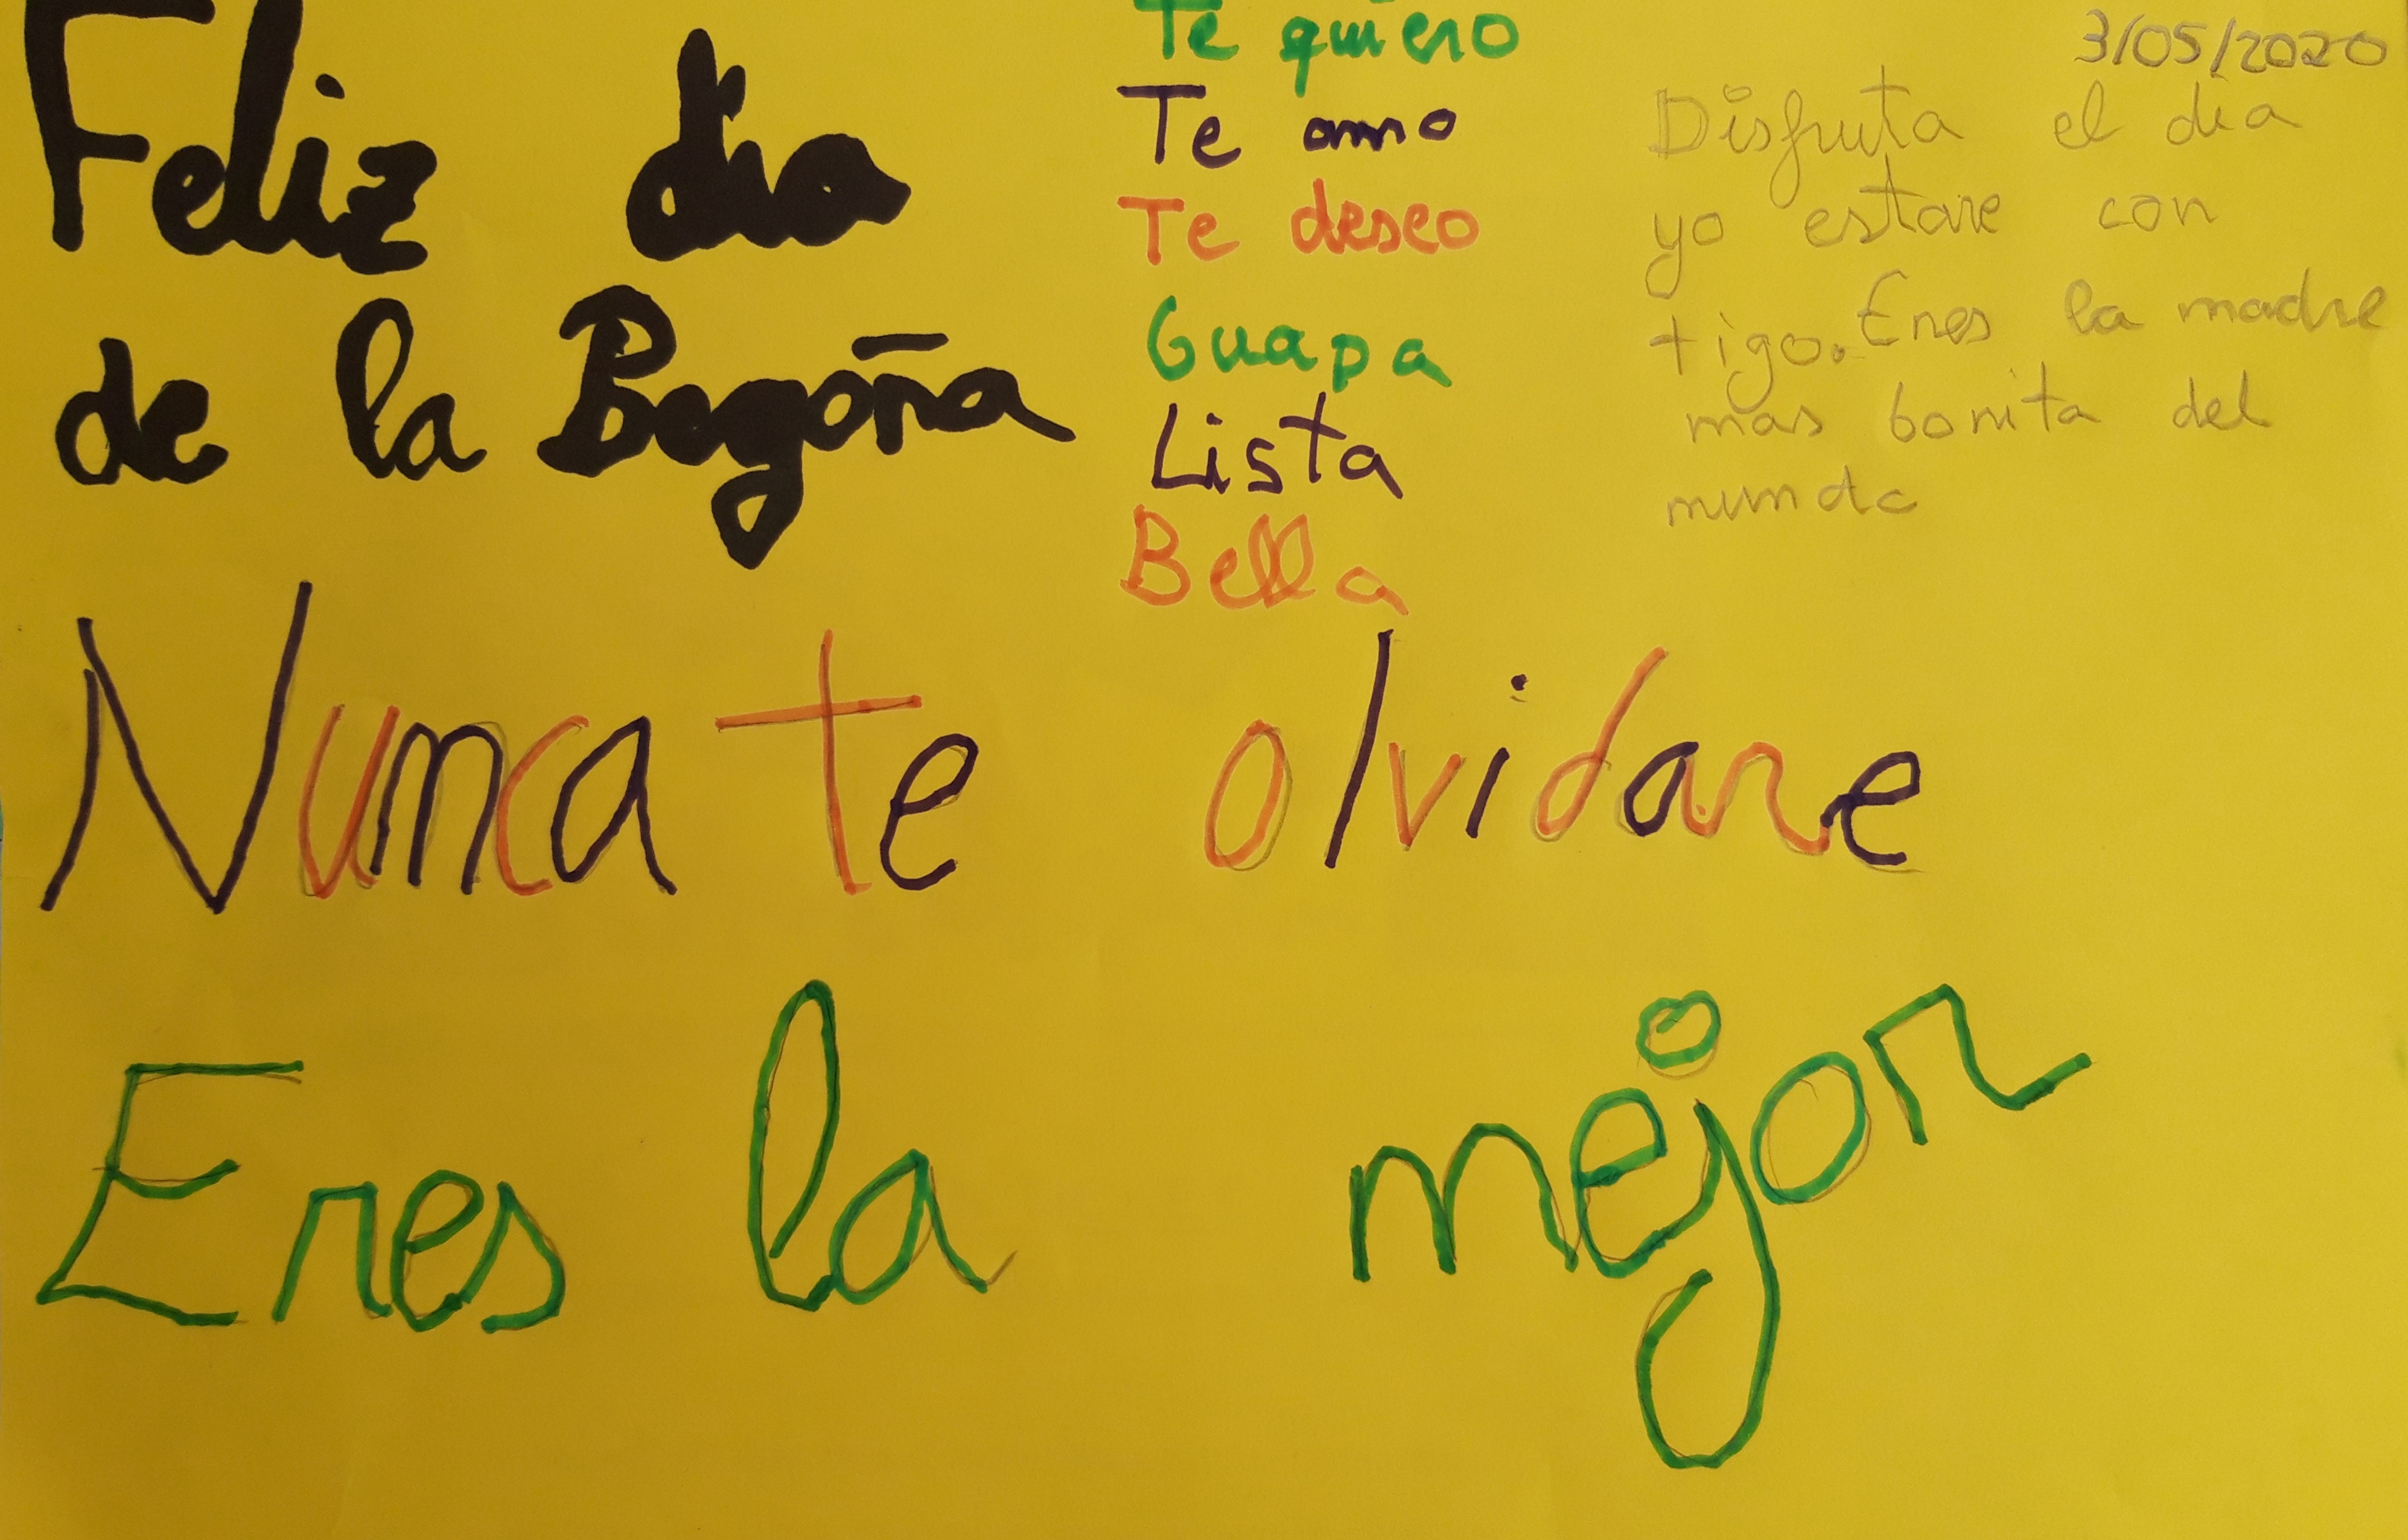 Feliz dia
de la Begoña
Te quiero
Te amo
Te deseo
Guapa
Lista
Bella
3/05/2020
Disfruta el dia
yo estare con
tigo. Eres la madre
mas bonita del
mundo
Nunca te olvidare
Eres la mejor